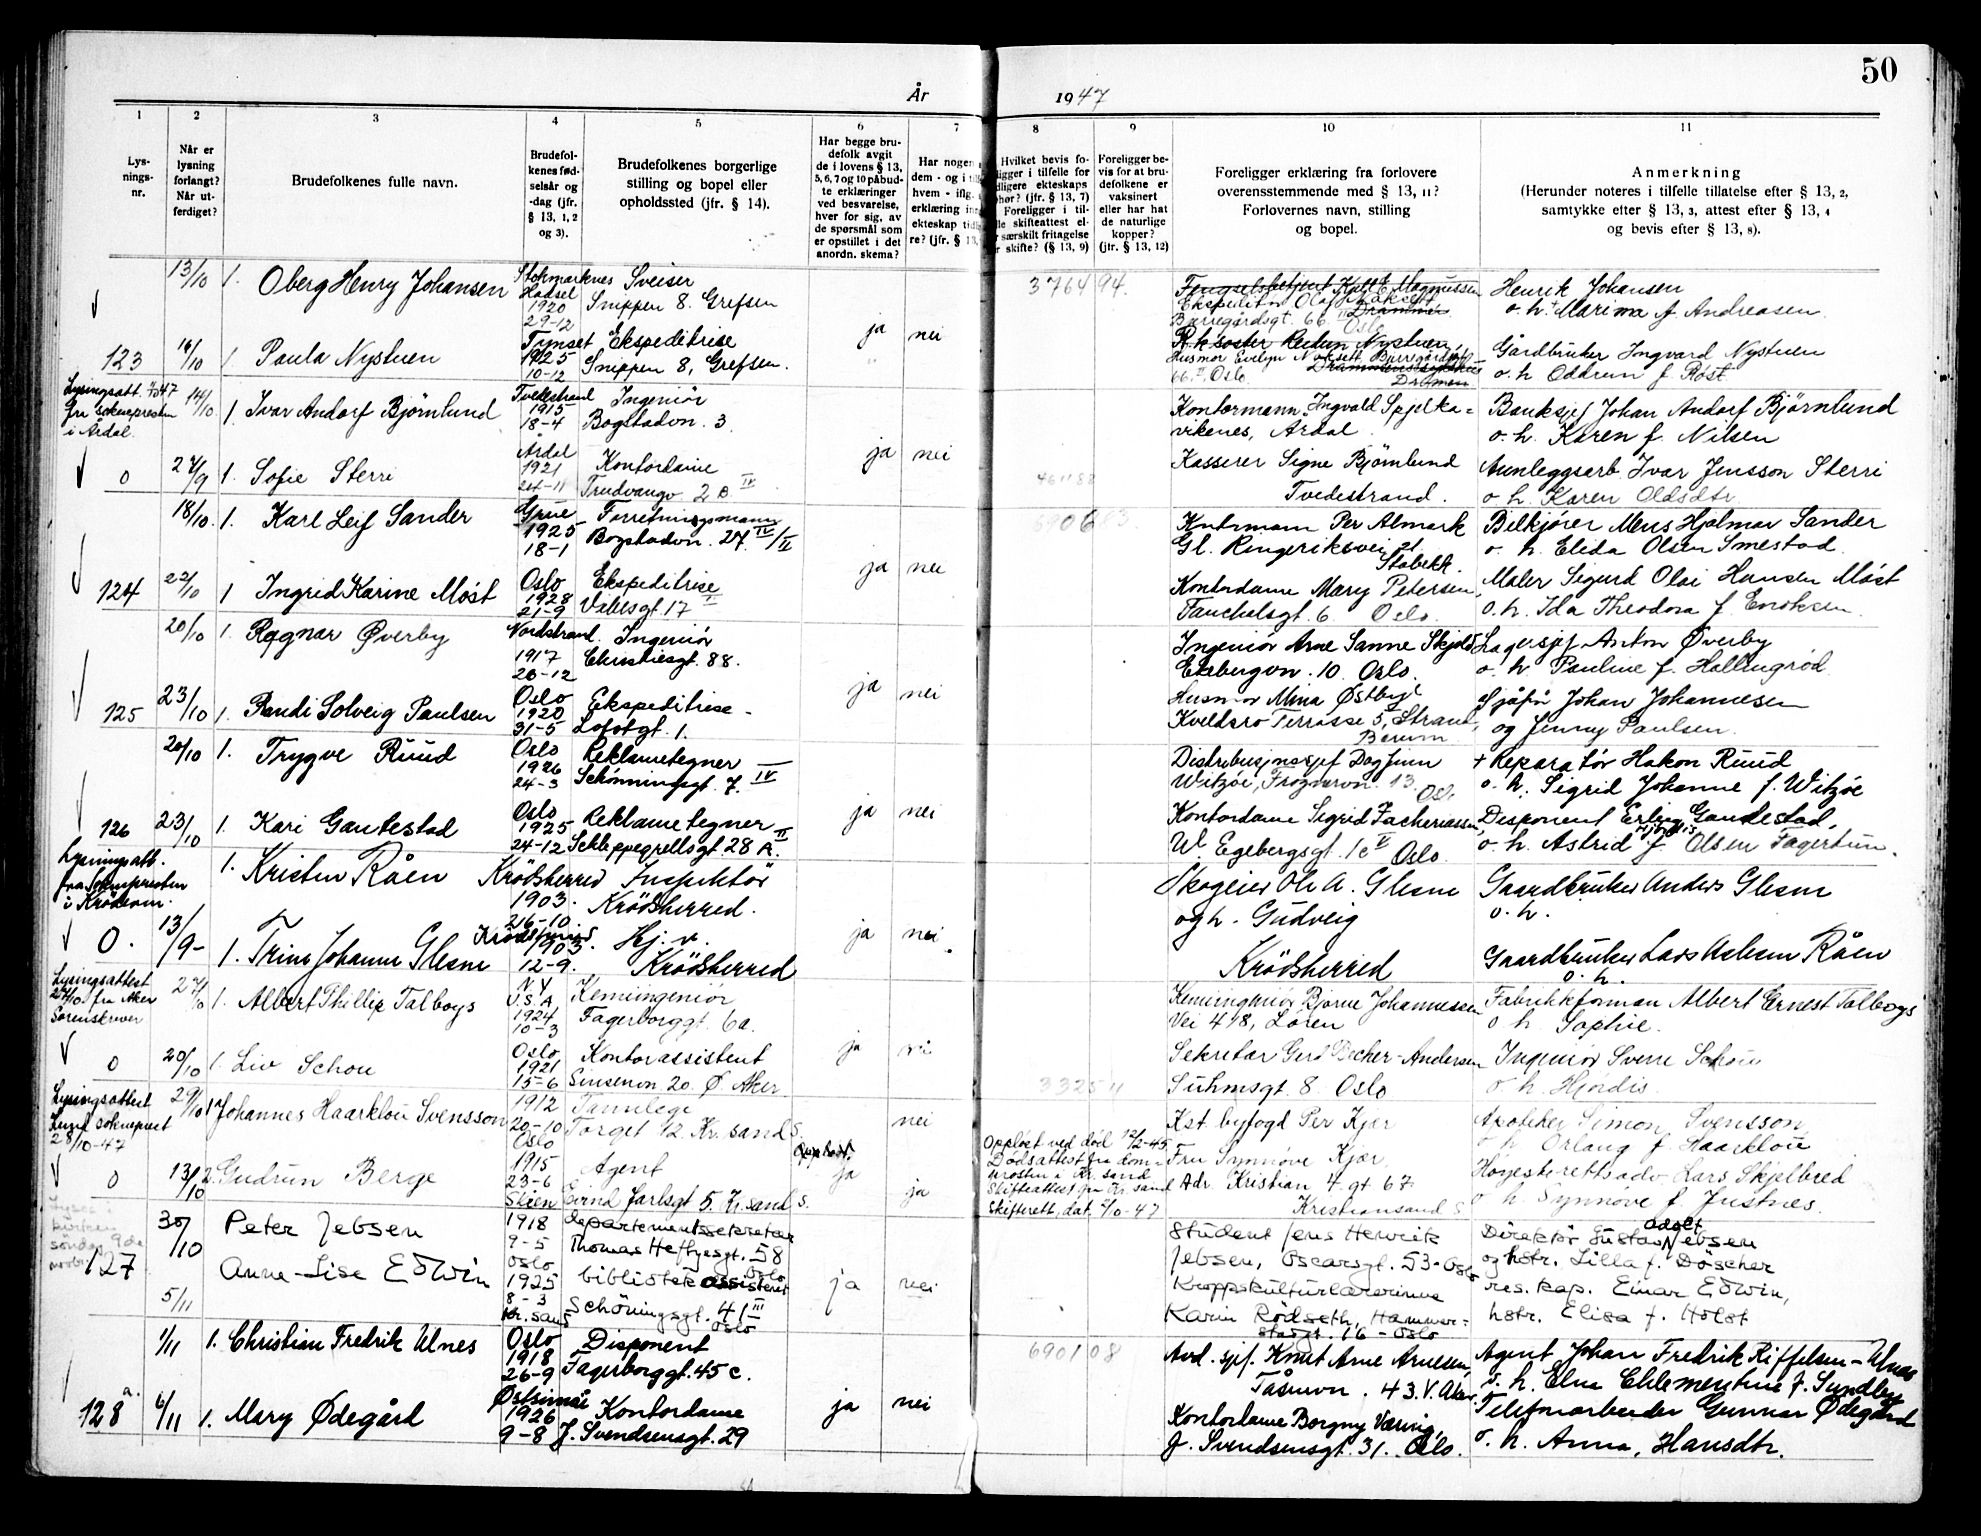 50
År 1947
1
2
3
4
5
6
7
8
9
10
11
Lys-
nings-
nr.
Når er
lysning
forlangt?
Når ut-
ferdiget?
Brudefolkenes fulle navn.
Brudefol-
kenes fød-
selsår og
-dag (jfr.
§ 13, 1, 2
og 3).
Brudefolkenes borgerlige
stilling og bopel eller
opholdssted (jfr. § 14).
Har begge bru-
defolk avgit
de i lovens § 13,
5, 6, 7 og 10 påbud-
te erklæringer
ved besvarelse,
hver for sig, av
de spørsmål som
er opstillet i det
anordn. skema?
Har nogen
dem - og i
hvem - iflg.
erklæring in
ekteskap tid
re? (jfr. § 13,
Hvilket bevis fo-
ligger i tilfelle for
dligere ekteskaps
phør? (jfr. § 13, 7)
Foreligger i til-
lle skifteattest el-
r særskilt fritagelse
r skifte? (§ 13, 9)
Foreligger be-
vis for at bru-
defolkene er
vaksinert
eller har hat
de naturlige
kopper?
(jfr. § 13, 12)
Foreligger erklæring fra forlovere
overensstemmende med § 13, 11?
Forlovernes navn, stilling
og bopel.
Anmerkning
(Herunder noteres i tilfelle tillatelse efter § 13, 2,
samtykke efter § 13, 3, attest efter § 13, 4
og bevis efter § 13, 8).
13/10 1. Oberg Henry Johansen
Stokmarknes
Hadsel
1920
29-12
Sveiser
Snippen 8. Grefsen
376494.
Fengselsbetjent Magnussen
Ekspeditør Olaf
Bjerregårdsgt. 66 II Drammen
Oslo
Henrik Johansen
o. h. Marima f. Andreasen
123 16/10 1 Paula Nystuen
Tynset
1925
10-12
Ekspeditrise
Snippen 8, Grefsen.
ja nei
R.k. søster Reidun Nystuen,
Husmor Evelyn Bjerregårdsgt
66. II Oslo
Drammen
Gårdbruker Ingvard Nystuen
o. h Oddrun f. Røst
Lysingsatt.
fra soknepresten
i Årdal.
14/10 1 Ivar Andorf Björnlund
Tvedestrand
1915
18-4
Ingeniør
Bogstadvn. 3.
Kontormann Ingvald Spjelka=
vikenes, Årdal
Banksjef Johan Andorf Björnlund
o. h. Karen f. Nilsen
0 27/9 1. Sofie Sterri
Årdal
1921
24-11
Kontordame
Trudvangv. 2 B. IV
ja nei
461188
Kasserer Signe Björnlund
Tvedestrand.
Annleggsarb. Ivar Jensson Sterri
o h. Karen Oldsdtr
18/10. 1. Karl Leif Sander
Grue
1925
18-1
Forretningsmann
Bogstadvn. 27. IV/II
Kntrmann Per Almark
Gl. Ringeriksvei 21
Stabekk.
Bilkjører Mens Hjalmar Sander
o. h. Elida Olsen Smestad.
124 22/10 1 Ingrid Karine Møst
Oslo
1928
21-9
Ekspeditrise
Vibesgt. 17
ja nei
Kontordame Mary Petersen,
Fauchalsgt. 6 Oslo.
Maler Sigurd Olai Hansen Møst
o. h. Ida Theodora f. Eriksen.
20/10 1. Ragnar Øverby
Nordstrand.
1917
28-12
Ingeniør
Christiesgt. 88.
Ingeniør Arne Sanne Skjold
Ekebergvn. 10 Oslo.
Lagersjef Anton Øverby
o. h. Pauline f. Hallingrød
125 23/10 1. Randi Solveig Paulsen
Oslo
1920
31-5
Ekspeditrise
Lofotgt. 1.
ja nei
Husmor Mina Østbye
Kveldsro Terrasse 5, Strand,
Bærum
Sjåfør Johan Johannesen
og Jenny Paulsen.
20/10 1. Trygve Ruud
Oslo
1926
24-3
Reklametegner
Schønningsgt. 7. IV
Distribusjonssjef Dagfinn
Witzøe, Frognervn. 13.
Oslo
+ Reparatør Håkon Ruud
o. h. Sigrid Johanne f. Witzøe
126 23/10 1. Kari Gautestad
Oslo
1925
24-12
Reklametegner
Schleppegrellsgt. 28 A. II
ja nei
Kontordame Sigrid Zachariassen,
W. Egebergsgt. 1c V Oslo
Disponent Erling Gautestad,
o. h. Astrid Hjördis f. Olsen Fagertun.
Lysingsatt.
fra Sokneprestten
i Krödern.
1. Kristen Råen
Krödsherred
1903.
26-10
Inspektör
Krödsherred.
Skogeier Ole A. Glesne
og h. Gudveig
Gaardbruker Anders Glesne
o. h.
0. 13/9- 1. Trine Johanne Glesne
Krödsherred
1903.
12-9.
Hj. v.
Krödsherred
ja nei
Krödsherred
Gaardbruker Lars Aslesen Råen
o. h.
Lysingsattest
27/10 fra Aker
Sorenskriver
27/10 1. Albert Phillip Talboys
N. Y
U.S.A.
1924
10-3
Kemiingeniør
Fagerborggt. 6a.
Kemiingeniør Bjarne Johannessen
Vei 418, Løren
Fabrikkforman Albert Ernest Talboys
o h. Sophie.
0 20/10 1. Liv Schou
Oslo
1921
15-6
Kontorassistent
Sinsenvn 20. Ø. Aker
ja nei
Sekretær Gerd Becher-Andersen
Suhmsgt 8. Oslo
Ingeniør Sverre Schou
o h. Hjördis.
Lysingsattest
Lund sokneprest
28/10-47
29/10 1 Johannes Haarklou Svensson
1912
20-10
Oslo
Tannlege
Torget 12. Kr. sand S.
nei
Kst byfogd Per Kjær
Apoteker Simon Svensson
o h Orlaug f. Haarklou
0 13/10 2. Gudrun Berge
1915
23-6
Skien
Agent
Eivind Jarlsgt 5. Kr. sand S.
ja
ja
Oppløst ved død 12/2-45
Dødsattest fra dom=
prosten i Kr. sand
Skifteattest fra Kr. sand
Skifterett, dat. 2/10-47
Fru Synnöve Kjær
Adr Kristian 4 gt 67
Kristiansand S
Høyesterettsadv. Lars Skjelbred
o h Synnöve f. Justnes.
Lyses i
kirken
søndag 9de
novbr.
127 30/10 Peter Jebsen
1918
9-5
Oslo
departementsekretær
Thomas Heftyesgt. 58
Oslo
Student Jens Henrik
Jebsen, Oscarsgt. 53-Oslo
Direktør Gustav Adolf Jebsen
og hstr. Lilla f. Döscher
5/11 Anna-Lise Edwin
1925
8-3
Kr. sand
bibliotekassistent
Schöningsgt. 41 III
Oslo
ja nei
Kroppskulturlærerinne
Karin Rödseth, Hammer-
stadgt. 16 - Oslo
res. kap. Einar Edwin,
hstr. Elisa f. Holst
1/11 1. Christian Fredrik Ulnes
Oslo
1918
26-9
Disponent
Fagerborggt. 45 c.
690108
Avd. sjef. Knut Arne Arnesen,
Tåsenvn. 43. V. Aker
Agent Johan Fredrik Riffelsen-Ulnes
o. h. Elna Chlementine f. Sundby
128 a. 6/11 1. Mary Ødegård
Østsinni
1926
9-8
Kontordame
J. Svendsensgt. 29
ja nei
Kontordame Borgny Væring,
J. Svendsensgt. 31. Oslo.
Telefonarbeider Gunnar Ødegård
o. h. Anna, Hansdtr.